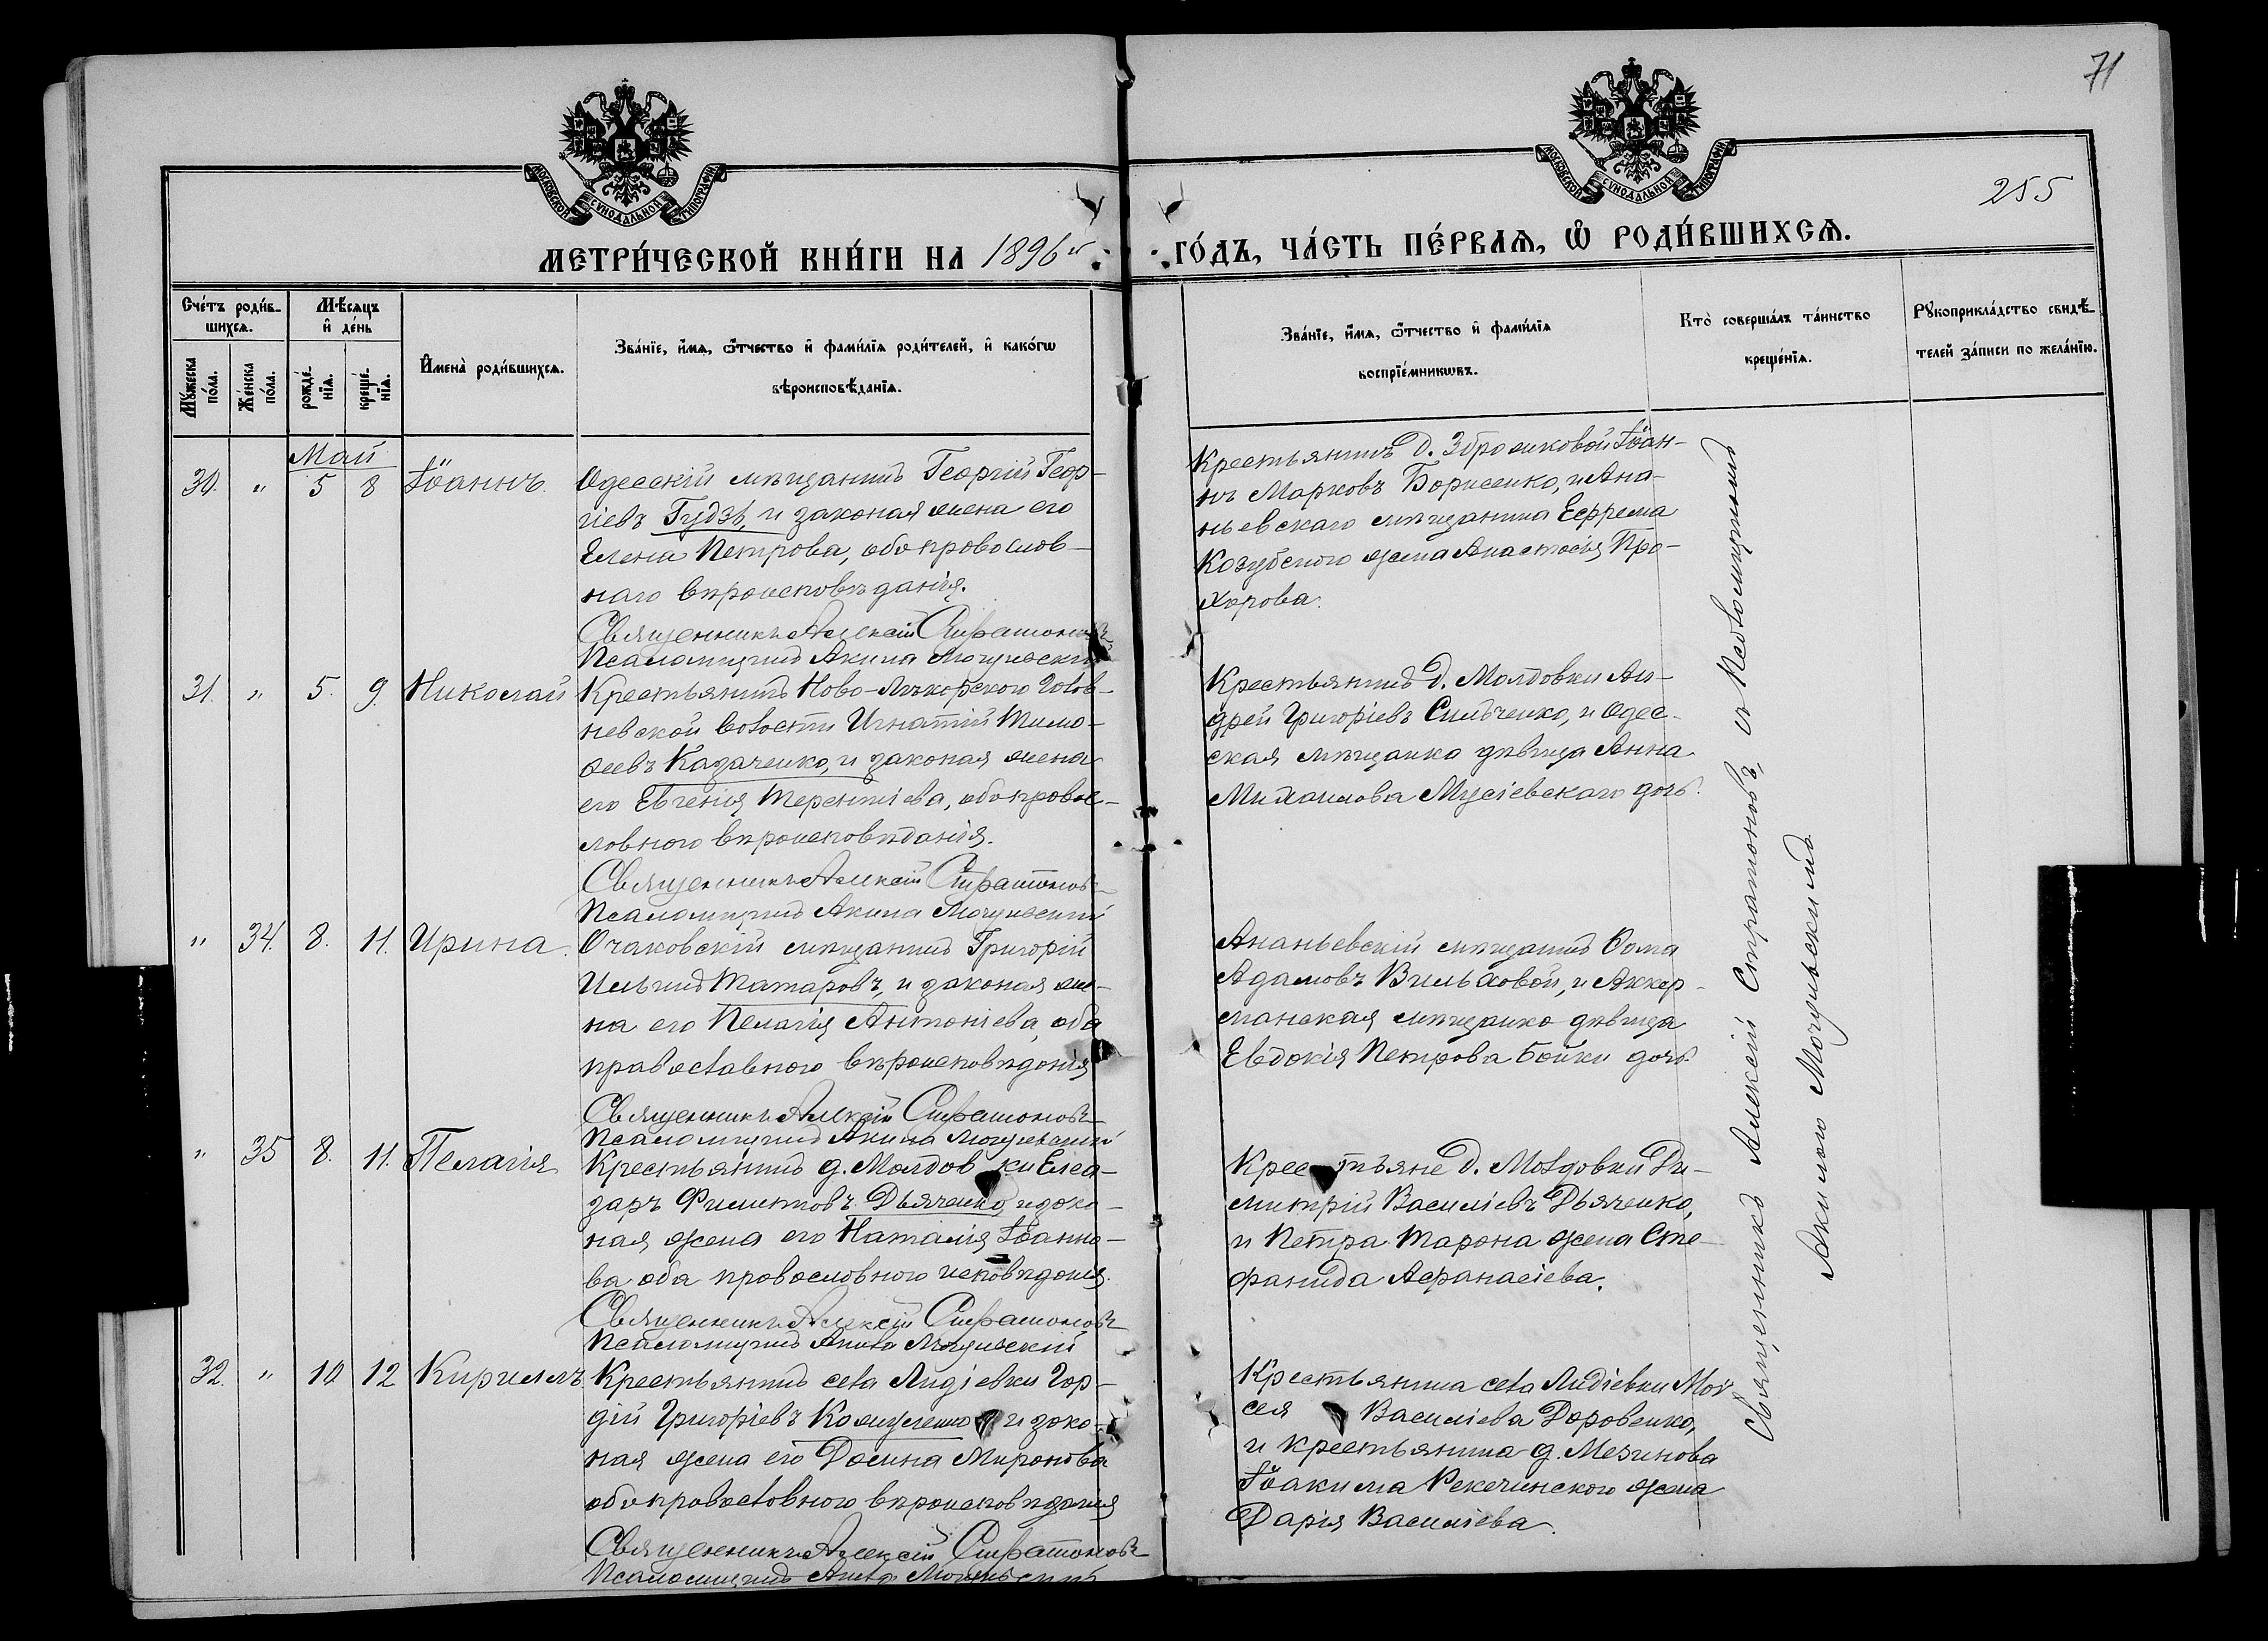 71
255
МОСКОВСКОЙ СѴНОДАЛЬНОЙ ТИПОГРАФІИ
МОСКОВСКОЙ СѴНОДАЛЬНОЙ ТИПОГРАФІИ
МЕТРИ́ЧЕСКОЙ КНИ́ГИ НА 1896й
ГО́ДЪ, ЧА́СТЬ ПЕ́РВАѦ, Ѽ РОДИ́ВШИХСѦ.
Сче́тъ роди́в-
шихсѧ.
Мꙋ́жеска по́ла.
Же́нска по́ла.
Мѣ́сѧцъ и҆ де́нь
рожде́-нїѧ.
креще́-нїѧ.
И҆мена̀ роди́вшихсѧ.
Зва́нїе, и҆́мѧ, ѻ҆́тчество и҆ фами́лїѧ роди́телей, и҆ како́гѡ
вѣроисповѣ́данїѧ.
Зва́нїе, и҆́мѧ, ѻ҆́тчество и҆ фами́лїѧ
воспрїе́мникѡвъ.
Кто̀ соверша́лъ та́инство
креще́нїѧ.
Рꙋкоприкла́дство свидѣ́-
телей за́писи по жела́нїю.
Май
30. " 5 8 Іоаннъ.
Одесскій мѣщанинъ Георгій Геор-
гіевъ Гудзь, и законая жена его
Елена Петрова, оба провослов-
наго вѣроисповѣданія.
Священникъ Алексій Стратоновъ
Псаломщикъ Акила Могулевскій
Крестьянинъ д. Зброжковой Іоан-
нъ Марковъ Борисенко, и Ана-
ньевскаго мѣщанина Ефрема
Козубского жена Анастасія Про-
хорова.
31. " 5. 9. Николай
Крестьянинъ Ново- Голов-
невской волости Игнатій Тимо-
ѳеевъ Казаченко, и законая жена
его Евгенія Терентіева, оба провос-
ловного вѣроисповѣданія.
Священникъ Алексій Стратоновъ
Псаломщикъ Акила Могулевскій
Крестьянинъ д. Молдовки Ан-
дрей Григоріевъ Сильченко, и Одес-
ская мѣщанка дѣвица Анна
Михаилова Мусіевскаго дочь.
" 34. 8. 11. Ирина.
Очаковскій мѣщанинъ Григорій
Ильинъ Татаровъ, и законая же-
на его Пелагія Антоніева, оба
православного вѣроисповѣданія
Священникъ Алексій Стратоновъ
Псаломщикъ Акила Могулевскій
Ананьевскій мѣщанинъ Ѳома
Адамовъ Вильховой, и Аккер-
манская мѣщанка дѣвица
Евдокія Петрова Бойки дочь.
" 35 8. 11. Пелагія
Крестьянинъ д. Молдовки Елеа-
заръ Филиповъ Дьяченко, и зако-
ная жена его Наталія Іоанно-
ва оба провословного исповѣданія.
Священникъ Алексій Стратоновъ
Псаломщикъ Акила Могулевскій
Крестьяне д. Молдовки Ди-
митрій Василіевъ Дьяченко,
и Петра Тарана жена Сте-
фанида Афанасіева.
32. " 10 12 Кириллъ.
Крестьянинъ села Лидіевки Гор-
дій Григоріевъ и зако-
ная жена его Домна Миронова
оба провославного вѣроисповѣданія
Священникъ Алексій Стратоновъ
Псаломщикъ Акила Могулевскій
Крестьянина села Лидіевки Мои-
сея Василіева Доровенко,
и крестьянина д. Мезинова
Іоакима Рекечинского жена
Дарія Василіева.
Священникъ Алексій Стратоновъ, съ Псаломщикомъ
Акилою Могулевскимъ